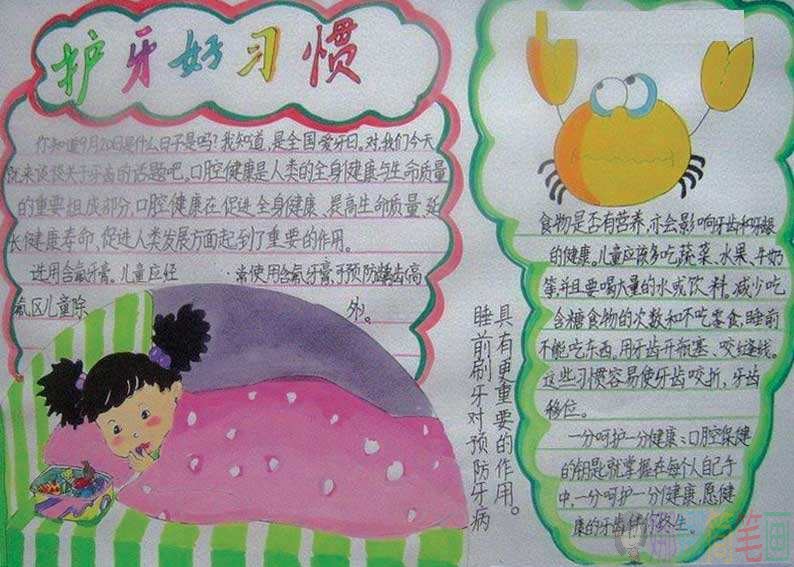 护牙好习惯
你知道9月20日是什么日子是吗?我知道,是全国爱牙日。对我们今天
就来谈谈关于牙齿的话题吧,口腔健康是人类的全身健康与生命质量
的重要担成部分,口腔健康在促进全身健康、提高生命质量,延
长健康寿命,促进人类发展方面起到了重要的作用。
选用含氟牙膏。儿童应经常使用含氟牙膏于预防龋齿(高
氟区儿童除外)。
具有更重要的作用。
睡前刷牙对预防牙病
食物是否有营养,亦会影响牙齿和牙龈
的健康。儿童应该多吃蔬菜、水果、牛奶
等,并且要喝大量的水或饮料。减少吃
含糖食物的次数和不吃零食,睡前
不能吃东西,用牙齿开瓶塞、咬缝线。
这些习惯容易使牙齿咬折,牙齿
移位。
一分呵护一分健康:口腔保健
的钥匙就掌握在每个人自己手
中,一分呵护一分健康,愿健
康的牙齿伴你终生。